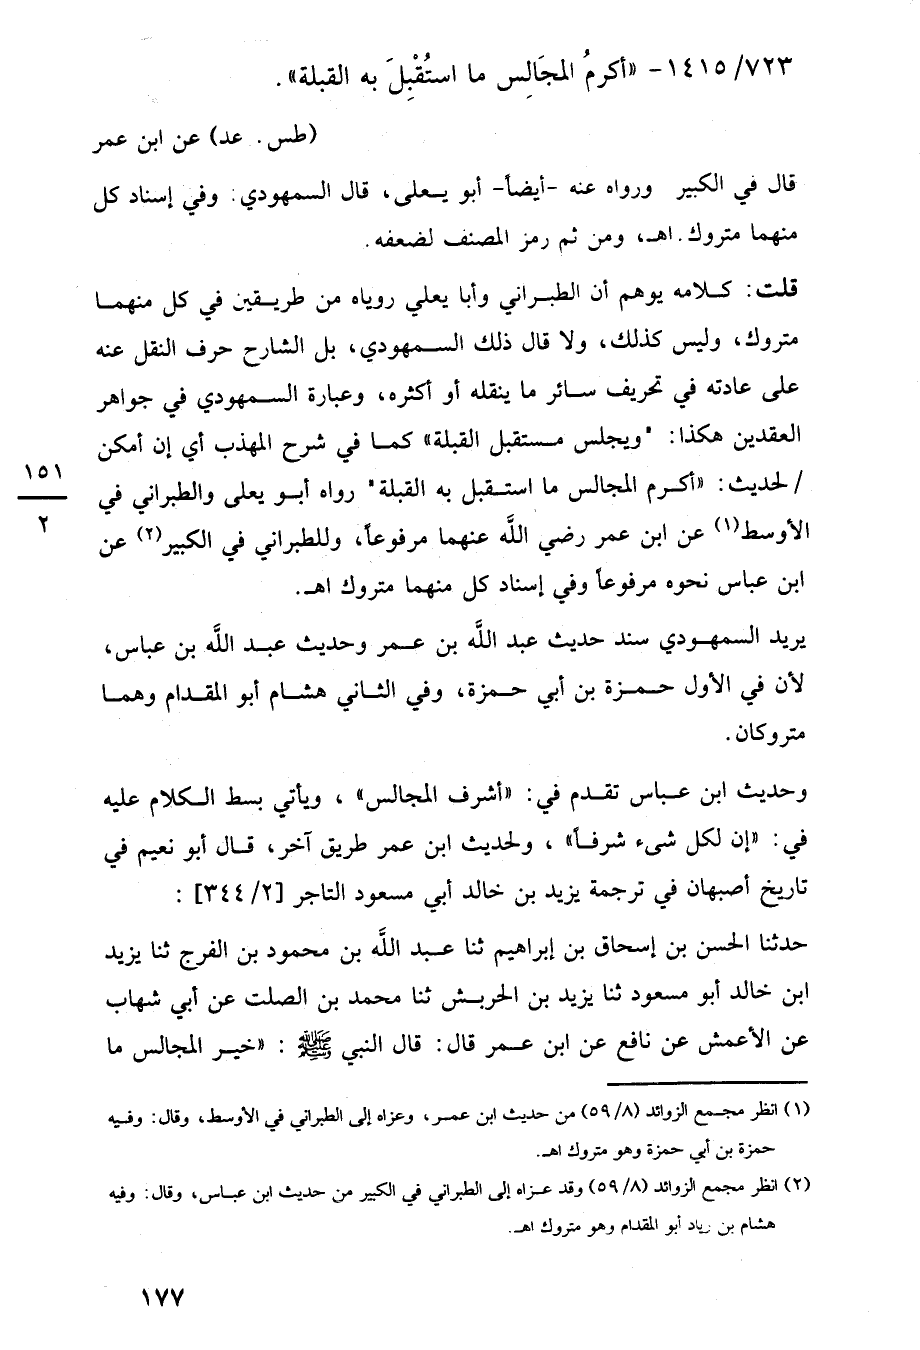 ١٤١٥/٧٢٣- «أكرمُ المجَالِسِ ما استُقْبِلَ به القبلة».
(طس. عد) عن ابن عمر
قال في الكبير ورواه عنه -أيضاً- أبو يعلى، قال السمهودي: وفي إسناد كل
منهما متروك. اهـ، ومن ثم رمز المصنف لضعفه.
قلت: كلامه يوهم أن الطبراني وأبا يعلي روياه من طريقين في كل منهما
متروك، وليس كذلك، ولا قال ذلك السمهودي، بل الشارح حرف النقل عنه
على عادته في تحريف سائر ما ينقله أو أكثره، وعبارة السمهودي في جواهر
العقدين هكذا: "ويجلس مستقبل القبلة» كما في شرح المهذب أي إن أمكن
١٥١
/لحديث: «أكرم المجالس ما استقبل به القبلة" رواه أبو يعلى والطبراني في
٢
الأوسط(١) عن ابن عمر رضي اللَّه عنهما مرفوعاً، وللطبراني في الكبير(٢) عن
ابن عباس نحوه مرفوعاً وفي إسناد كل منهما متروك اهـ.
يريد السمهودي سند حديث عبد اللَّه بن عمر وحديث عبد اللَّه بن عباس،
لأن في الأول حمزة بن أبي حمزة، وفي الثاني هشام أبو المقدام وهما
متروكان.
وحديث ابن عباس تقدم في: «أشرف المجالس» ، ويأتي بسط الكلام عليه
في: «إن لكل شىء شرفاً» ، ولحديث ابن عمر طريق آخر، قال أبو نعيم في
تاريخ أصبهان في ترجمة يزيد بن خالد أبي مسعود التاجر [٣٤٤/٢] :
حدثنا الحسن بن إسحاق بن إبراهيم ثنا عبد اللَّه بن محمود بن الفرج ثنا يزيد
ابن خالد أبو مسعود ثنا يزيد بن الحريش ثنا محمد بن الصلت عن أبي شهاب
عن الأعمش عن نافع عن ابن عمر قال: قال النبي ﷺ : «خير المجالس ما
(١) انظر مجمع الزوائد (٥٩/٨) من حديث ابن عمر، وعزاه إلى الطبراني في الأوسط، وقال: وفيه
حمزة بن أبي حمزة وهو متروك اهـ.
(٢) انظر مجمع الزوائد (٥٩/٨) وقد عزاه إلى الطبراني في الكبير من حديث ابن عباس، وقال: وفيه
هشام بن زياد أبو المقدام وهو متروك اهـ.
١٧٧